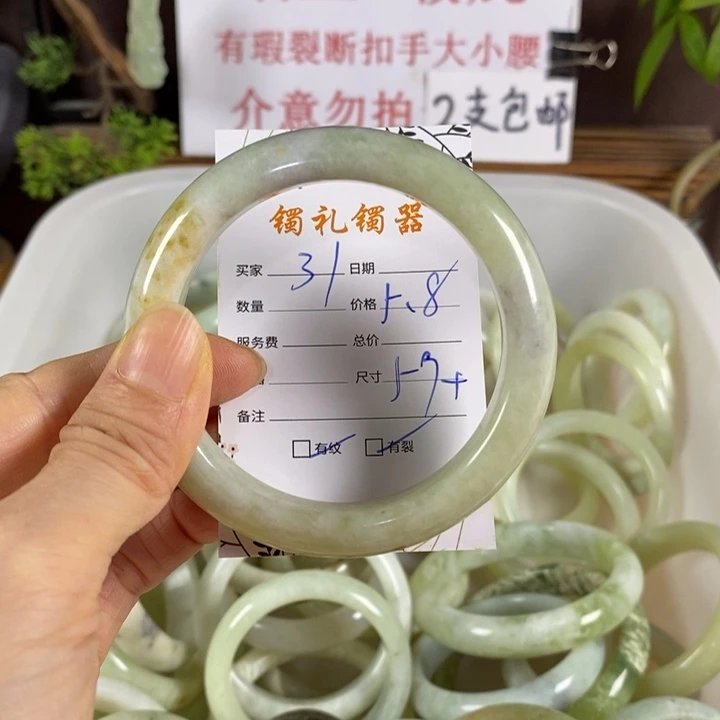 有瑕裂断扣手大小腰
介意勿拍 2支包邮
镯礼镯器
买家 31 日期
数量 价格 5.8
服务费 总价
尺寸 57+
备注
有纹 有裂